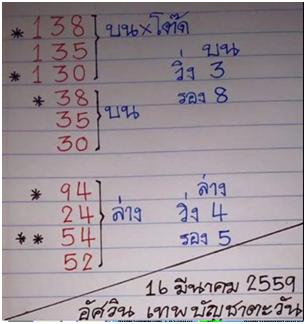 *138 บน×โต๊ด
135
*130
บน
วิ่ง 3
รอง 8
*38 บน
35
30
*94 ล่าง
24
**54
52
ล่าง
วิ่ง 4
รอง 5
16 มีนาคม 2559
อัศวิน เทพบัญชาตะวัน